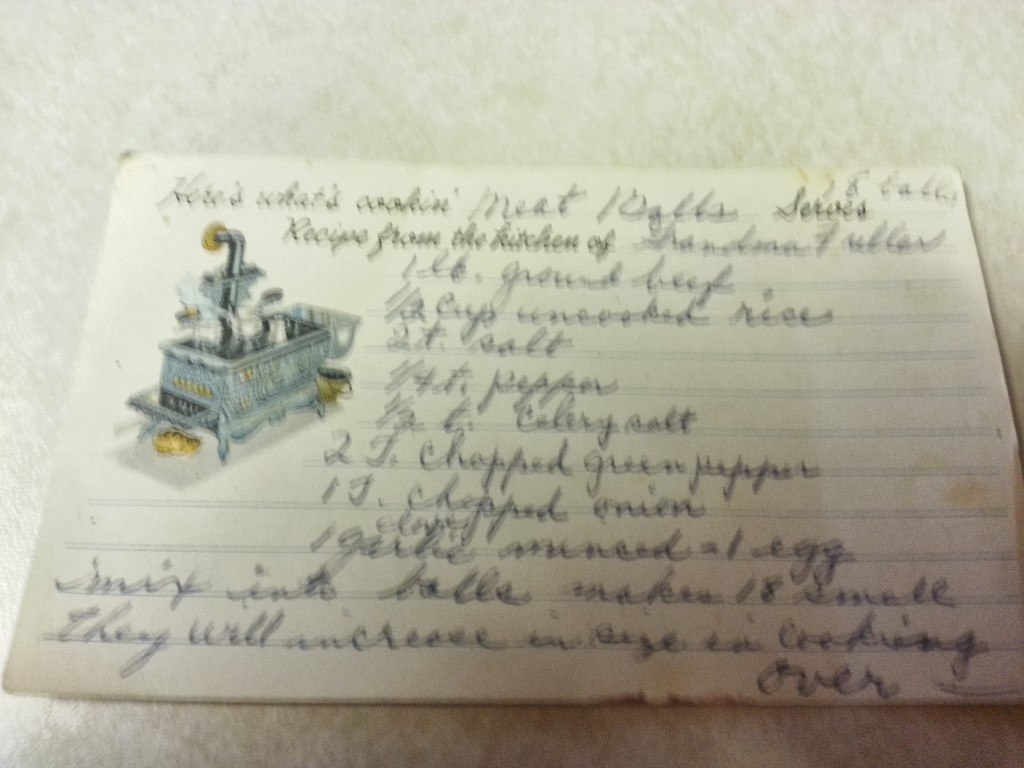 Here's what's cookin' Meat Balls Serves 18 balls
Recipe from the kitchen of Grandma Fuller
1 lb. ground beef
1/2 cup uncooked rice
2 t. salt
1/4 t. pepper
1/2 t. Celery salt
2 T. chopped green pepper
1 T. chopped onion
clove
1 garlic minced - 1 egg
mix into balls makes 18 small
They will increase in size in cooking
over